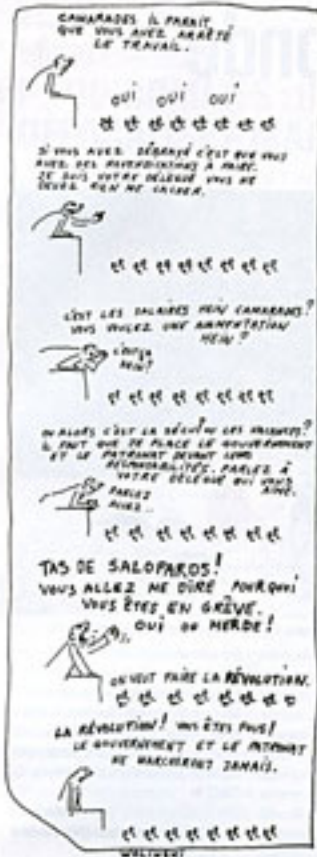 CAMARADES IL PARAIT
QUE VOUS AVEZ ARRÊTÉ
LE TRAVAIL.
OUI OUI OUI
SI VOUS AVEZ DÉBRAYÉ C'EST QUE VOUS
AVEZ DES REVENDICATIONS À FAIRE.
JE SUIS VOTRE DÉLÉGUÉ VOUS NE
DEVEZ RIEN ME CACHER.
C'EST LES SALAIRES HEIN CAMARADES?
VOUS VOULEZ UNE AUGMENTATION
HEIN?
C'EST ÇA
HEIN?
OU ALORS C'EST LA SÉCU OU LES VACANCES?
IL FAUT QUE JE PLACE LE GOUVERNEMENT
ET LE PATRONAT DEVANT LEURS
RESPONSABILITÉS. PARLEZ À
VOTRE DÉLÉGUÉ QUI VOUS
AIME.
PARLEZ
TAS DE SALOPARDS!
VOUS ALLEZ ME DIRE POURQUOI
VOUS ÊTES EN GRÈVE.
OUI OU MERDE!
ON VEUT FAIRE LA RÉVOLUTION.
LA RÉVOLUTION! VOUS ÊTES FOUS!
LE GOUVERNEMENT ET LE PATRONAT
NE MARCHERONT JAMAIS.
WOLINSKI